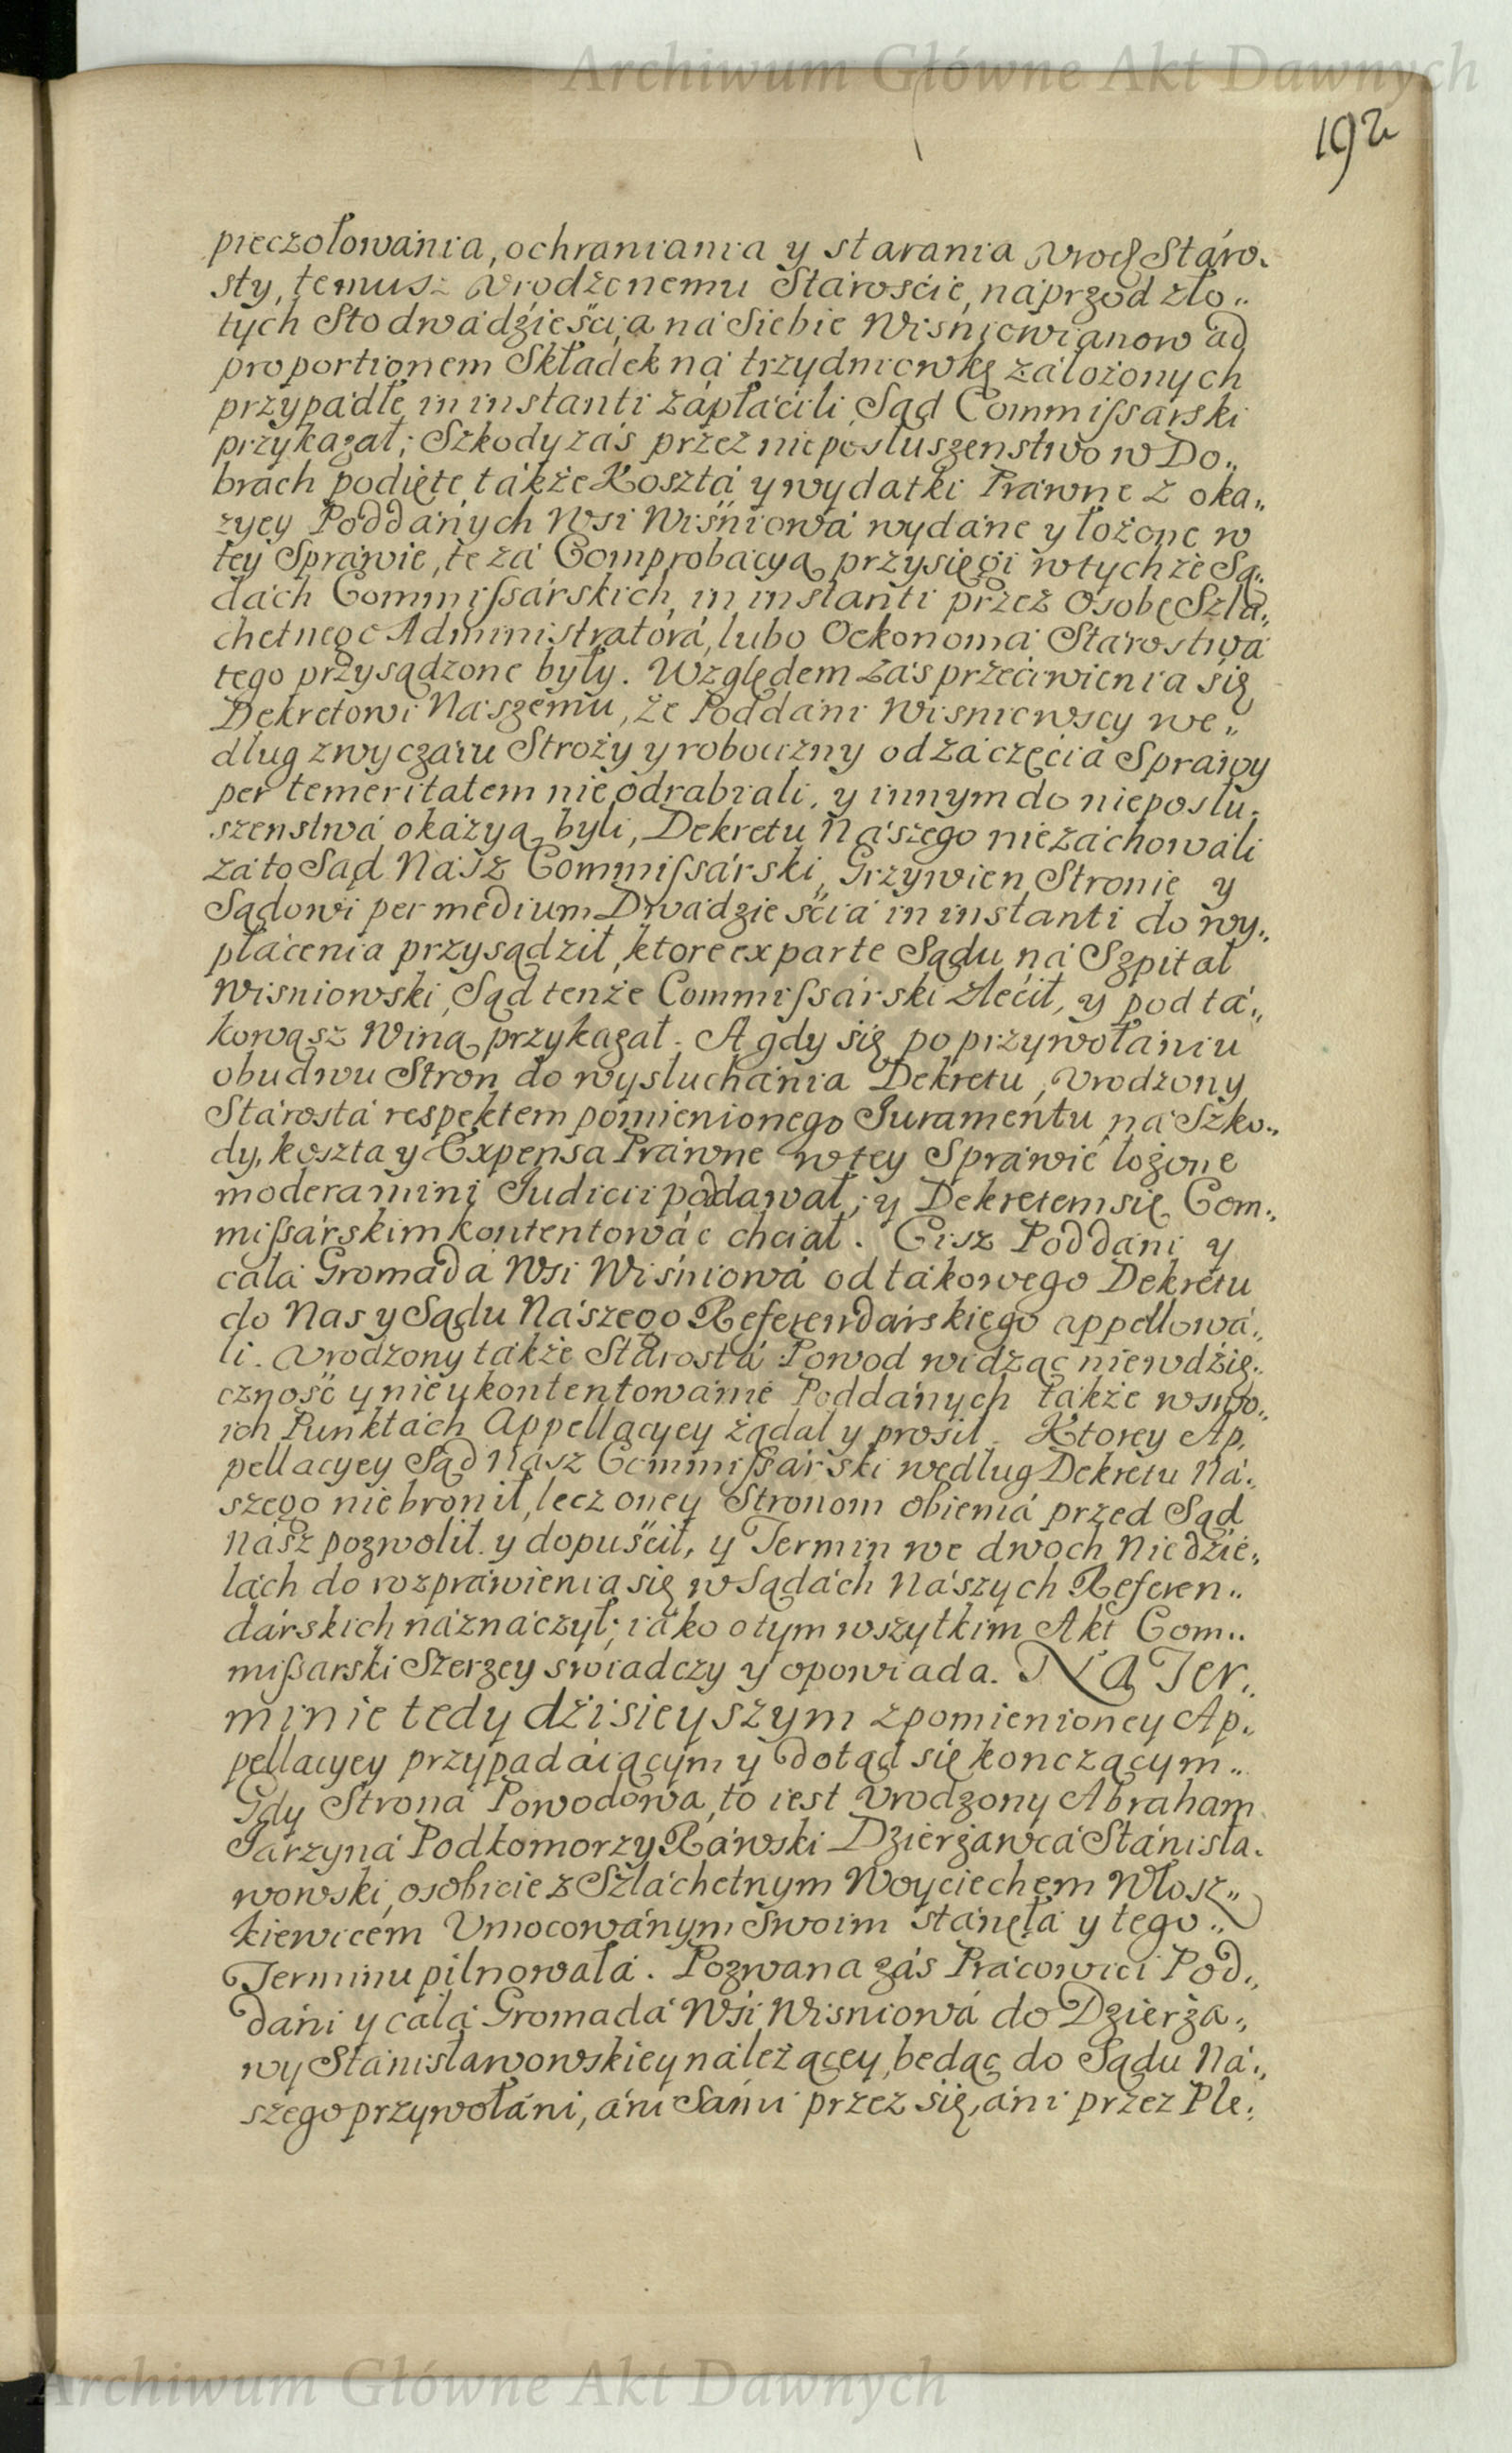 Archiwum Główne Akt Dawnych
192
pieczołowánia, ochraniania y starania Vrodz Stáro„
sty, temusz Vrodzonemu Staroście, náprzod zło„
tych Sto dwádzieścia, ná Siebie Wisniowianow ad
proportionem Składek ná trzydniowkę záłożonych
przypádłe, in instanti zápłácili, Sąd Commissárski
przykazał; Szkody záś przez nieposłuszenstwo w Do„
brach podięte, tákże Kosztá y wydatki Prawne z oka„
zyey Poddánych Wsi Wiśniowá wydáne y łożone w
tey Spráwie, te zá Comprobácyą przysięgi w tychże Są„
dách Commissárskich, in instanti przez Osobę Szlá„
chetnego Administratorá, lubo Oekonomá Starostwá
tego przysądzone były. Względem záś przeciwienia się
Dekretowi Nászemu, że Poddáni Wisniowscy we„
dług zwyczáiu Stroży y robocizny od záczęcia Spráwy
per temeritatem nie odrabiali, y innym do nieposłu„
szenstwá okázyą byli, Dekretu Nászego nie záchowáli
zá to Sąd Nász Commissárski, Grzywien Stronie y
Sądowi per medium Dwádzieściá in instanti do wy„
płácenia przysądził, ktore ex parte Sądu ná Szpital
Wisniowski, Sąd tenże Commissárski zlecił, y pod tá„
kowąsz Winą przykazał. A gdy się po przywołániu
obudwu Stron do wysłuchánia Dekretu, Vrodzony
Stárostá respektem pomienionego Juramentu ná Szko„
dy, koszta y Expensa Práwne w tey Spráwie łożone
moderamini Judicii podawał, y Dekretem się Com„
missárskim kontentowác chciał. Cisz Poddáni y
cáłá Gromádá Wsi Wiśniowá od tákowego Dekretu
do Nas y Sądu Nászego Referendárskiego appellowá„
li. Vrodzony tákże Stárostá Powod widząc niewdzię„
czność y nieukontentowánie Poddánych tákże w swo„
ich Punktách Appellácyey żądał y prosił. Ktorey Ap„
pellacyey Sąd Nász Commissárski według Dekretu Ná„
szego nie bronił, lecz oney Stronom obiemá przed Sąd
Nász pozwolił y dopuścił, y Termin we dwoch Niedzie„
lách do rozpráwienia się w Sądách Nászych Referen„
dárskich náznáczył; iáko o tym wszytkim Akt Com„
mißarski Szerzey swiadczy y opowiada. NA Ter„
minie tedy dzisieyszym z pomienioney Ap„
pellacyey przypadáiącym y dotąd się konczącym„
Gdy Strona Powodowa, to iest Vrodzony Abraham
Tarzyná Podkomorzy Ráwski Dzierżawcá Stánisłá„
wowski, osobicie z Szláchetnym Woyciechem Włosz„
kiewicem Umocowánym Swoim stánęłá y tego„
Terminu pilnowáłá. Pozwana záś Prácowici Pod„
dáni y cáłá Gromadá Wsi Wisniowá do Dzierżá„
wy Stánisławowskiey náleżącey, bedąc do Sądu Ná„
szego przywołáni, áni Sámi przez się, áni przez Ple„
Archiwum Główne Akt Dawnych